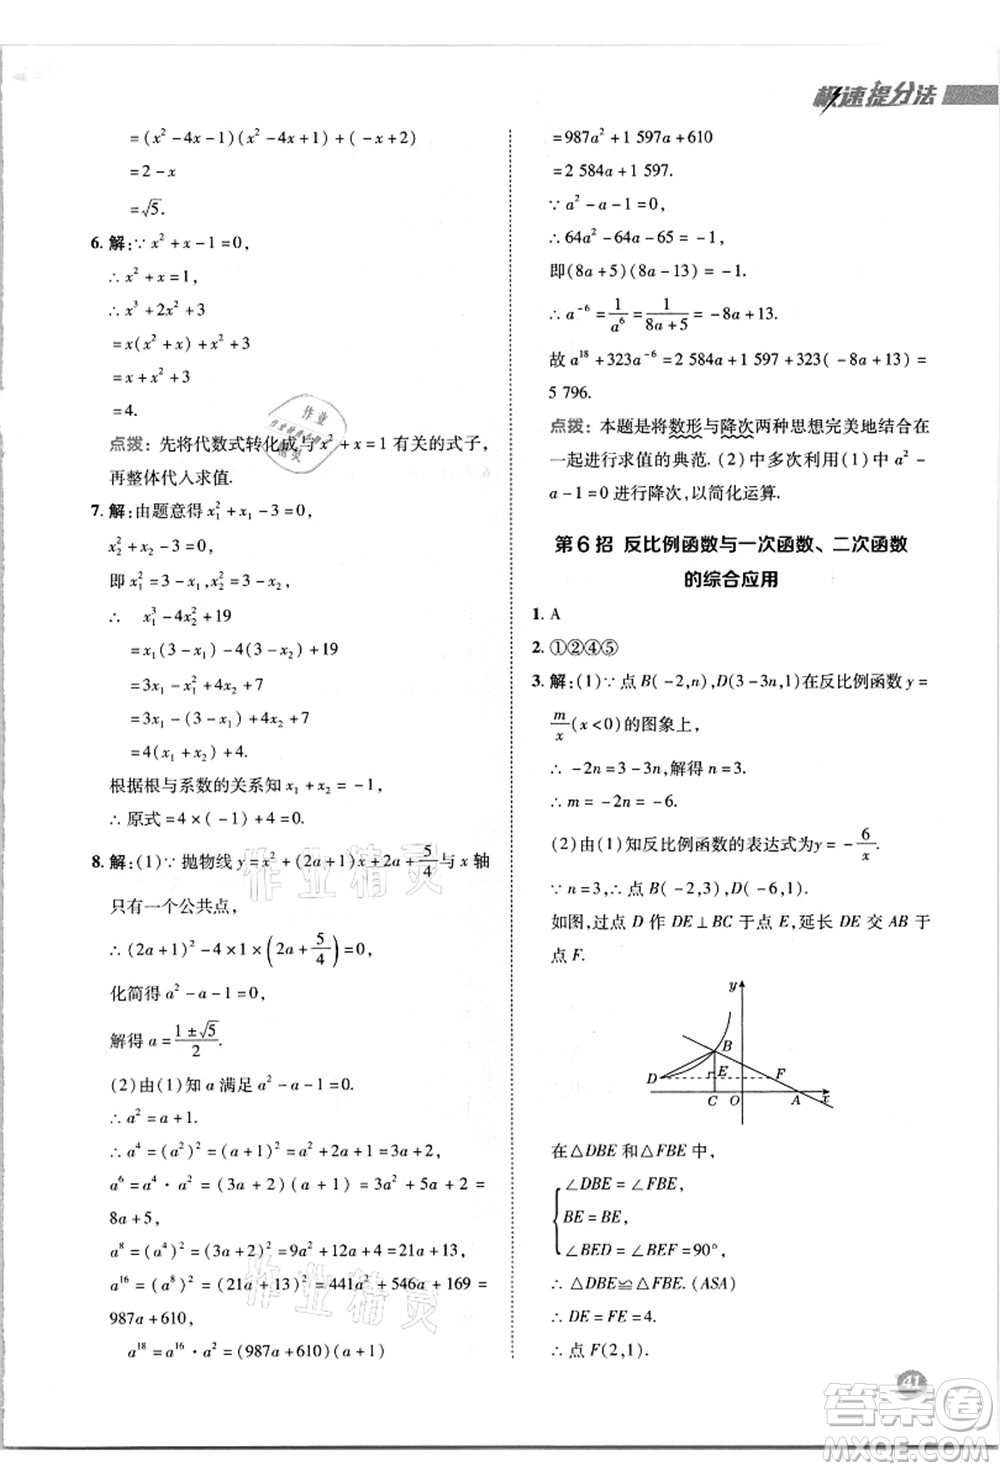 极速提分法
=(x²-4x-1)(x²-x+1)+(-x+2)
=2-x
=√5.
6. 解:∵x²+x-1=0,
∴x²+x=1,
∴x³+2x²+3
=x(x²+x)+x²+3
=x+x²+3
=4.
点拨:先将代数式转化成与x²+x=1有关的式子,
再整体代入求值.
7. 解:由题意得x₁²+x₁-3=0,
x₂²+x₂-3=0,
即x₁²=3-x₁,x₂²=3-x₂,
∴ x₁³-4x₂²+19
=x₁(3-x₁)-4(3-x₂)+19
=3x₁-x₁²+4x₂+7
=3x₁-(3-x₁)+4x₂+7
=4(x₁+x₂)+4.
根据根与系数的关系知x₁+x₂=-1,
∴原式=4×(-1)+4=0.
8. 解:(1)∵抛物线y=x²+(2a+1)x+2a+5/4与x轴
只有一个公共点,
∴(2a+1)²-4×1×(2a+5/4)=0,
化简得a²-a-1=0,
解得a=(1±√5)/2.
(2)由(1)知a满足a²-a-1=0.
∴a²=a+1.
∴a⁴=(a²)²=(a+1)²=a²+2a+1=3a+2,
a⁶=a⁴·a²=(3a+2)(a+1)=3a²+5a+2=
8a+5,
a⁸=(a⁴)²=(3a+2)²=9a²+12a+4=21a+13,
a¹⁶=(a⁸)²=(21a+13)²=441a²+546a+169=
987a+610,
a¹⁸=a¹⁶·a²=(987a+610)(a+1)
=987a²+1 597a+610
=2 584a+1 597.
∵a²-a-1=0,
∴64a²-64a-65=-1,
即(8a+5)(8a-13)=-1.
∴a⁻⁶=1/a⁶=1/(8a+5)=-8a+13.
故a¹⁸+323a⁻⁶=2 584a+1 597+323(-8a+13)=
5 796.
点拨:本题是将数形与降次两种思想完美地结合在
一起进行求值的典范.(2)中多次利用(1)中a²-
a-1=0进行降次,以简化运算.
第6招 反比例函数与一次函数、二次函数
的综合应用
1. A
2. ①②④⑤
3. 解:(1)∵点B(-2,n),D(3-3n,1)在反比例函数y=
m/x(x<0)的图象上,
∴-2n=3-3n,解得n=3.
∴m=-2n=-6.
(2)由(1)知反比例函数的表达式为y=-6/x.
∵n=3,∴点B(-2,3),D(-6,1).
如图,过点D作DE⊥BC于点E,延长DE交AB于
点F.
y
B
D
E
F
C
O
A
x
在△DBE和△FBE中,
∠DBE=∠FBE,
BE=BE,
∠BED=∠BEF=90°,
∴△DBE≌△FBE.(ASA)
∴DE=FE=4.
∴点F(2,1).
41
作业精灵
作业精灵
答案圈
MXQE.COM